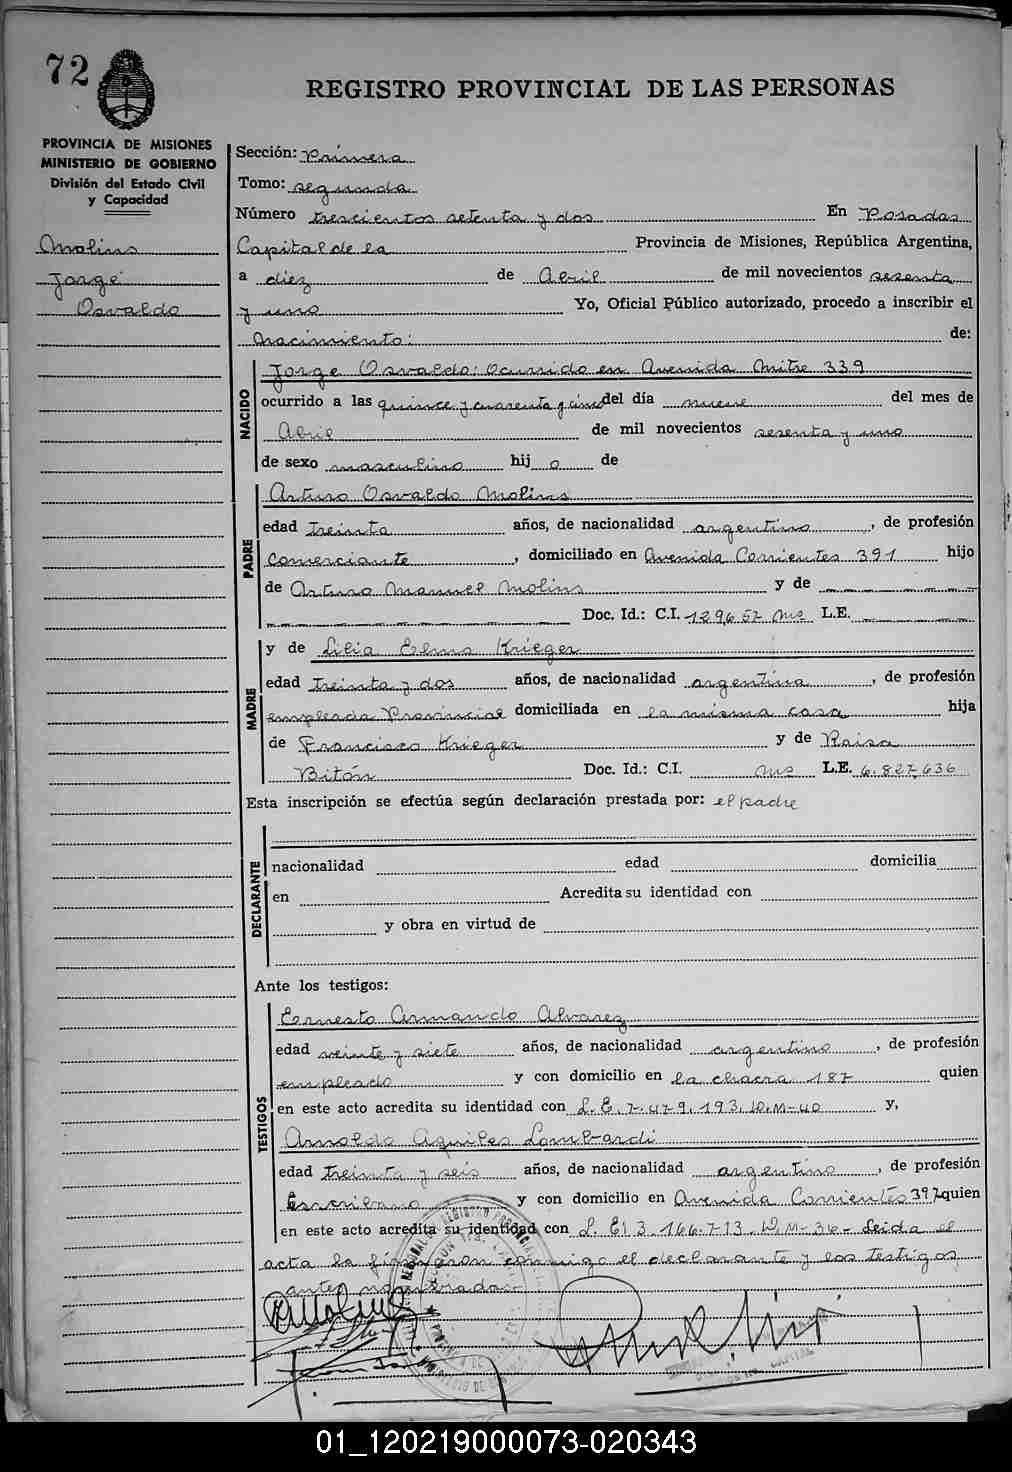 72
REGISTRO PROVINCIAL DE LAS PERSONAS
PROVINCIA DE MISIONES
MINISTERIO DE GOBIERNO
División del Estado Civil
y Capacidad
Molins
Jorge
Osvaldo
Sección: Primera
Tomo: segunda
Número trescientos setenta y dos En Posadas
Capital de la Provincia de Misiones, República Argentina,
a diez de Abril de mil novecientos sesenta
y uno Yo, Oficial Público autorizado, procedo a inscribir el
nacimiento: de:
NACIDO
Jorge Osvaldo: Ocurrido en Avenida Mitre 339
ocurrido a las quince y cuarenta y cinco del día nueve del mes de
Abril de mil novecientos sesenta y uno
de sexo masculino hijo de
PADRE
Arturo Osvaldo Molins
edad treinta años, de nacionalidad argentino, de profesión
comerciante, domiciliado en Avenida Corrientes 391 hijo
de Arturo Manuel Molins y de
Doc. Id.: C.I. 129657 Ms L.E.
MADRE
y de Lilia Elma Krieger
edad treinta y dos años, de nacionalidad argentina, de profesión
empleada Provincial domiciliada en la misma casa hija
de Francisco Krieger y de Raisa
Bitón Doc. Id.: C.I. Ms L.E. 6.827.636
Esta inscripción se efectúa según declaración prestada por: el padre
DECLARANTE
nacionalidad edad domicilia
en Acredita su identidad con
y obra en virtud de
Ante los testigos:
TESTIGOS
Ernesto Armando Alvarez
edad veinte y siete años, de nacionalidad argentino, de profesión
empleado y con domicilio en la chacra 187 quien
en este acto acredita su identidad con L.E. 7.479.193.D.M-40 y,
Arnoldo Aquiles Lombardi
edad treinta y seis años, de nacionalidad argentino, de profesión
Escribano y con domicilio en Avenida Corrientes 397 quien
en este acto acredita su identidad con L.E. 3.166.713.D.M-36- Leida el
acta la firmaron conmigo el declarante y los testigos
antes nombrados.
01_120219000073-020343